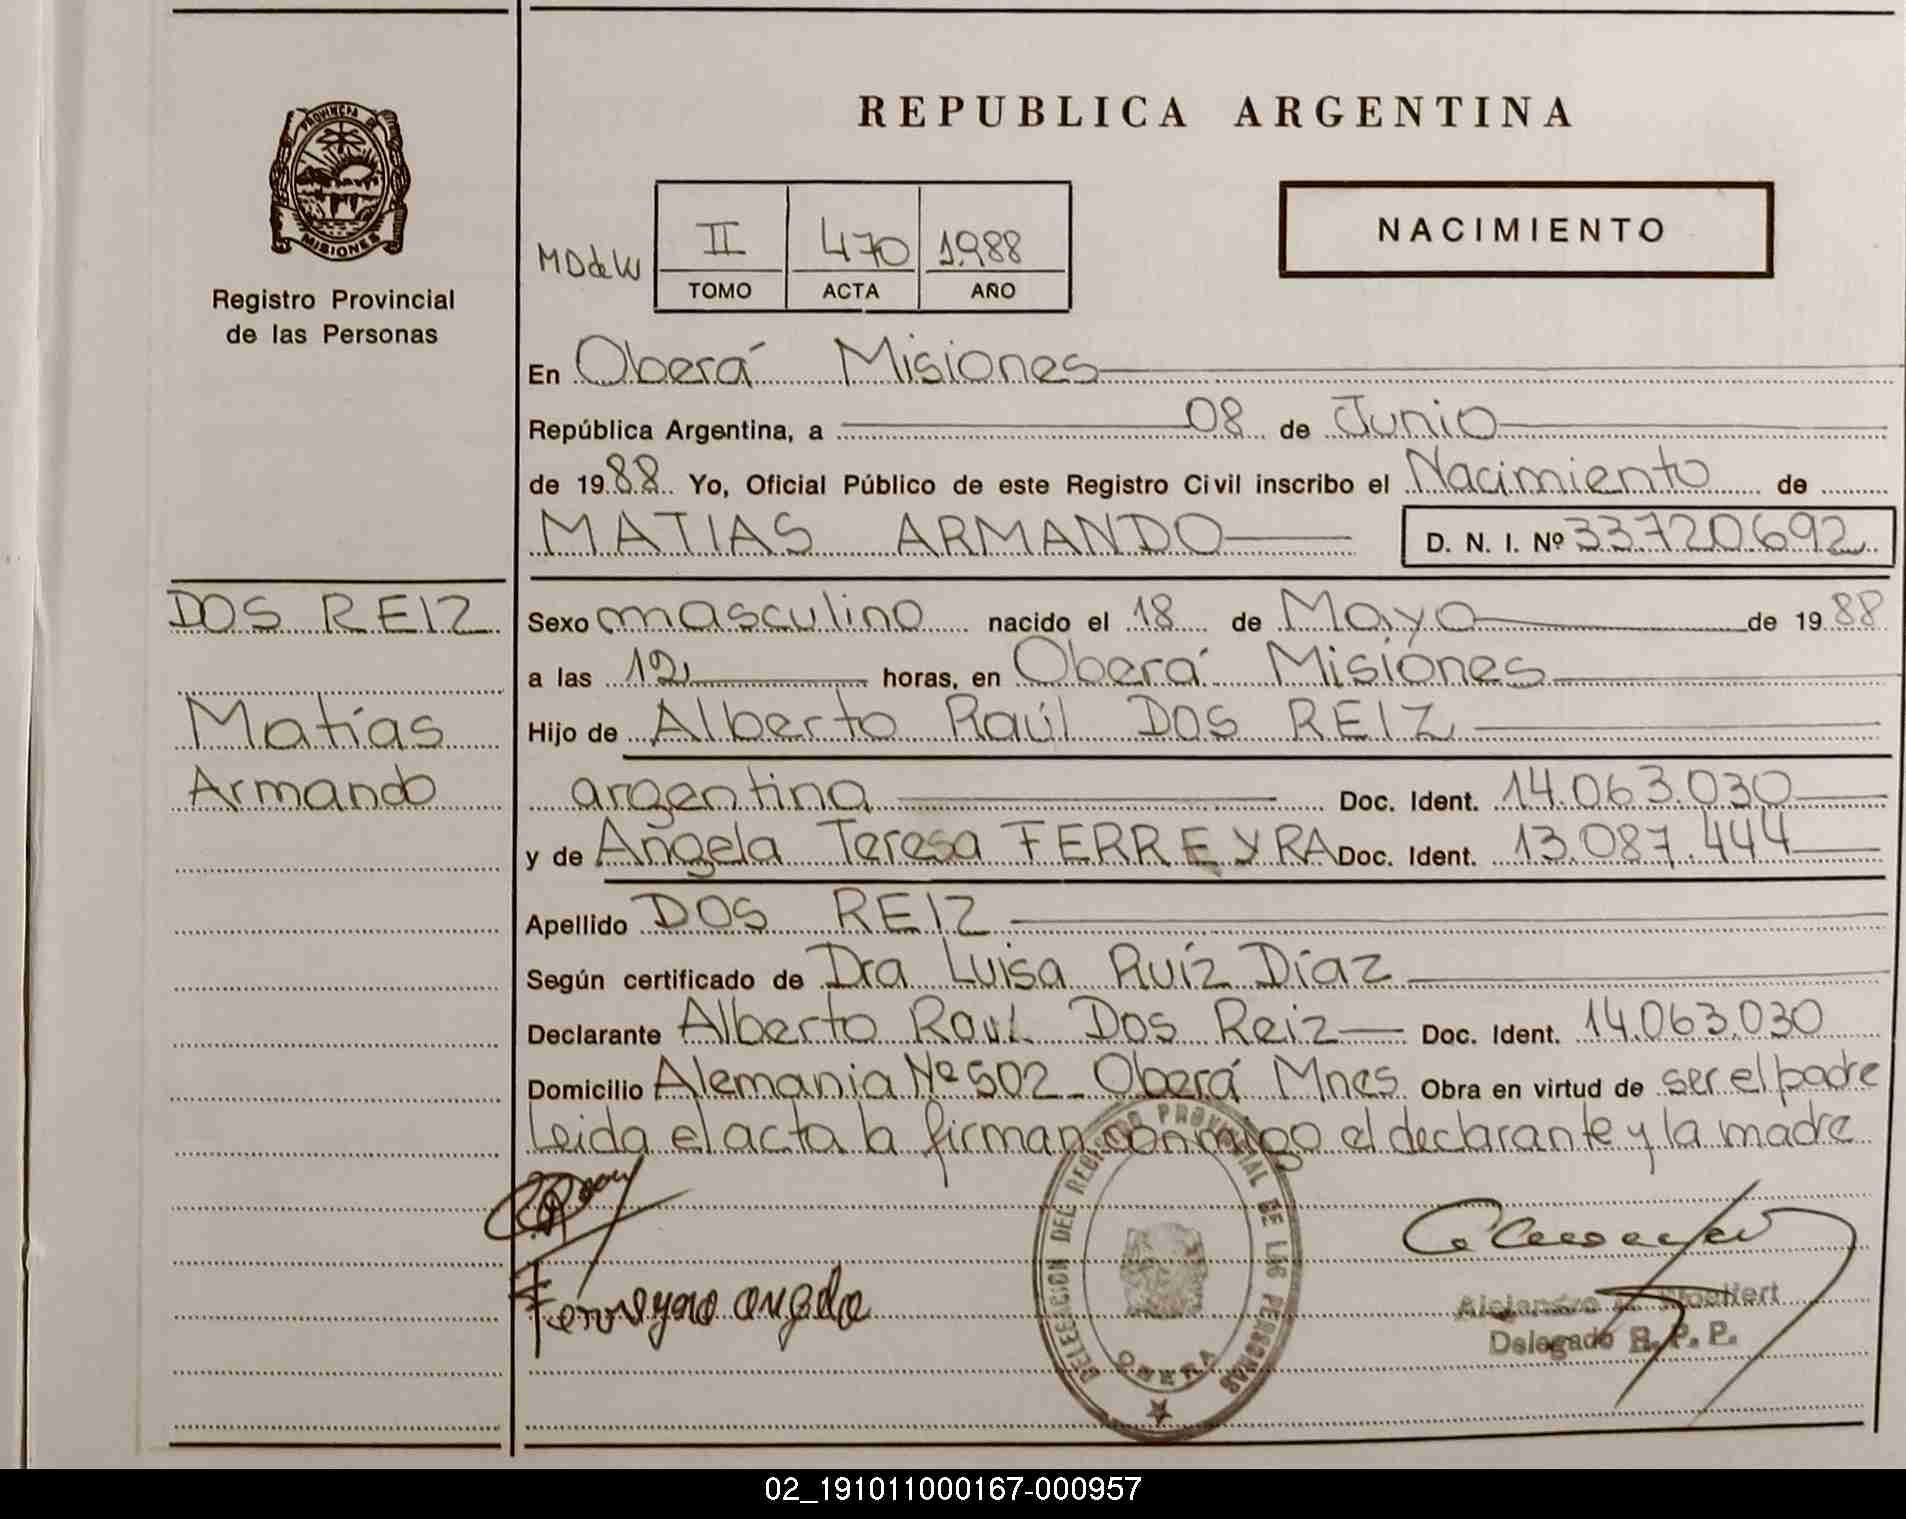 PROVINCIA DE
MISIONES
Registro Provincial
de las Personas
DOS REIZ
Matías
Armando
REPUBLICA ARGENTINA
MDdeW
II 470 1988
TOMO ACTA AÑO
NACIMIENTO
En Oberá Misiones
República Argentina, a 08 de Junio
de 1988 Yo, Oficial Público de este Registro Civil inscribo el Nacimiento de
MATIAS ARMANDO D. N. I. Nº 33720692
Sexo masculino nacido el 18 de Mayo de 1988
a las 12 horas, en Oberá Misiones
Hijo de Alberto Raúl DOS REIZ
argentina Doc. Ident. 14.063.030
y de Angela Teresa FERREYRA Doc. Ident. 13.087.444
Apellido DOS REIZ
Según certificado de Dra Luisa Ruíz Díaz
Declarante Alberto Raul Dos Reiz Doc. Ident. 14.063.030
Domicilio Alemania Nº 502 Oberá Mnes Obra en virtud de ser el padre
Leida el acta la firman conmigo el declarante y la madre
Ferreyra angela
DELEGACION DEL REGISTRO PROVINCIAL DE LAS PERSONAS
OBERA
Alejandro
Delegado R. P. P.
02_191011000167-000957